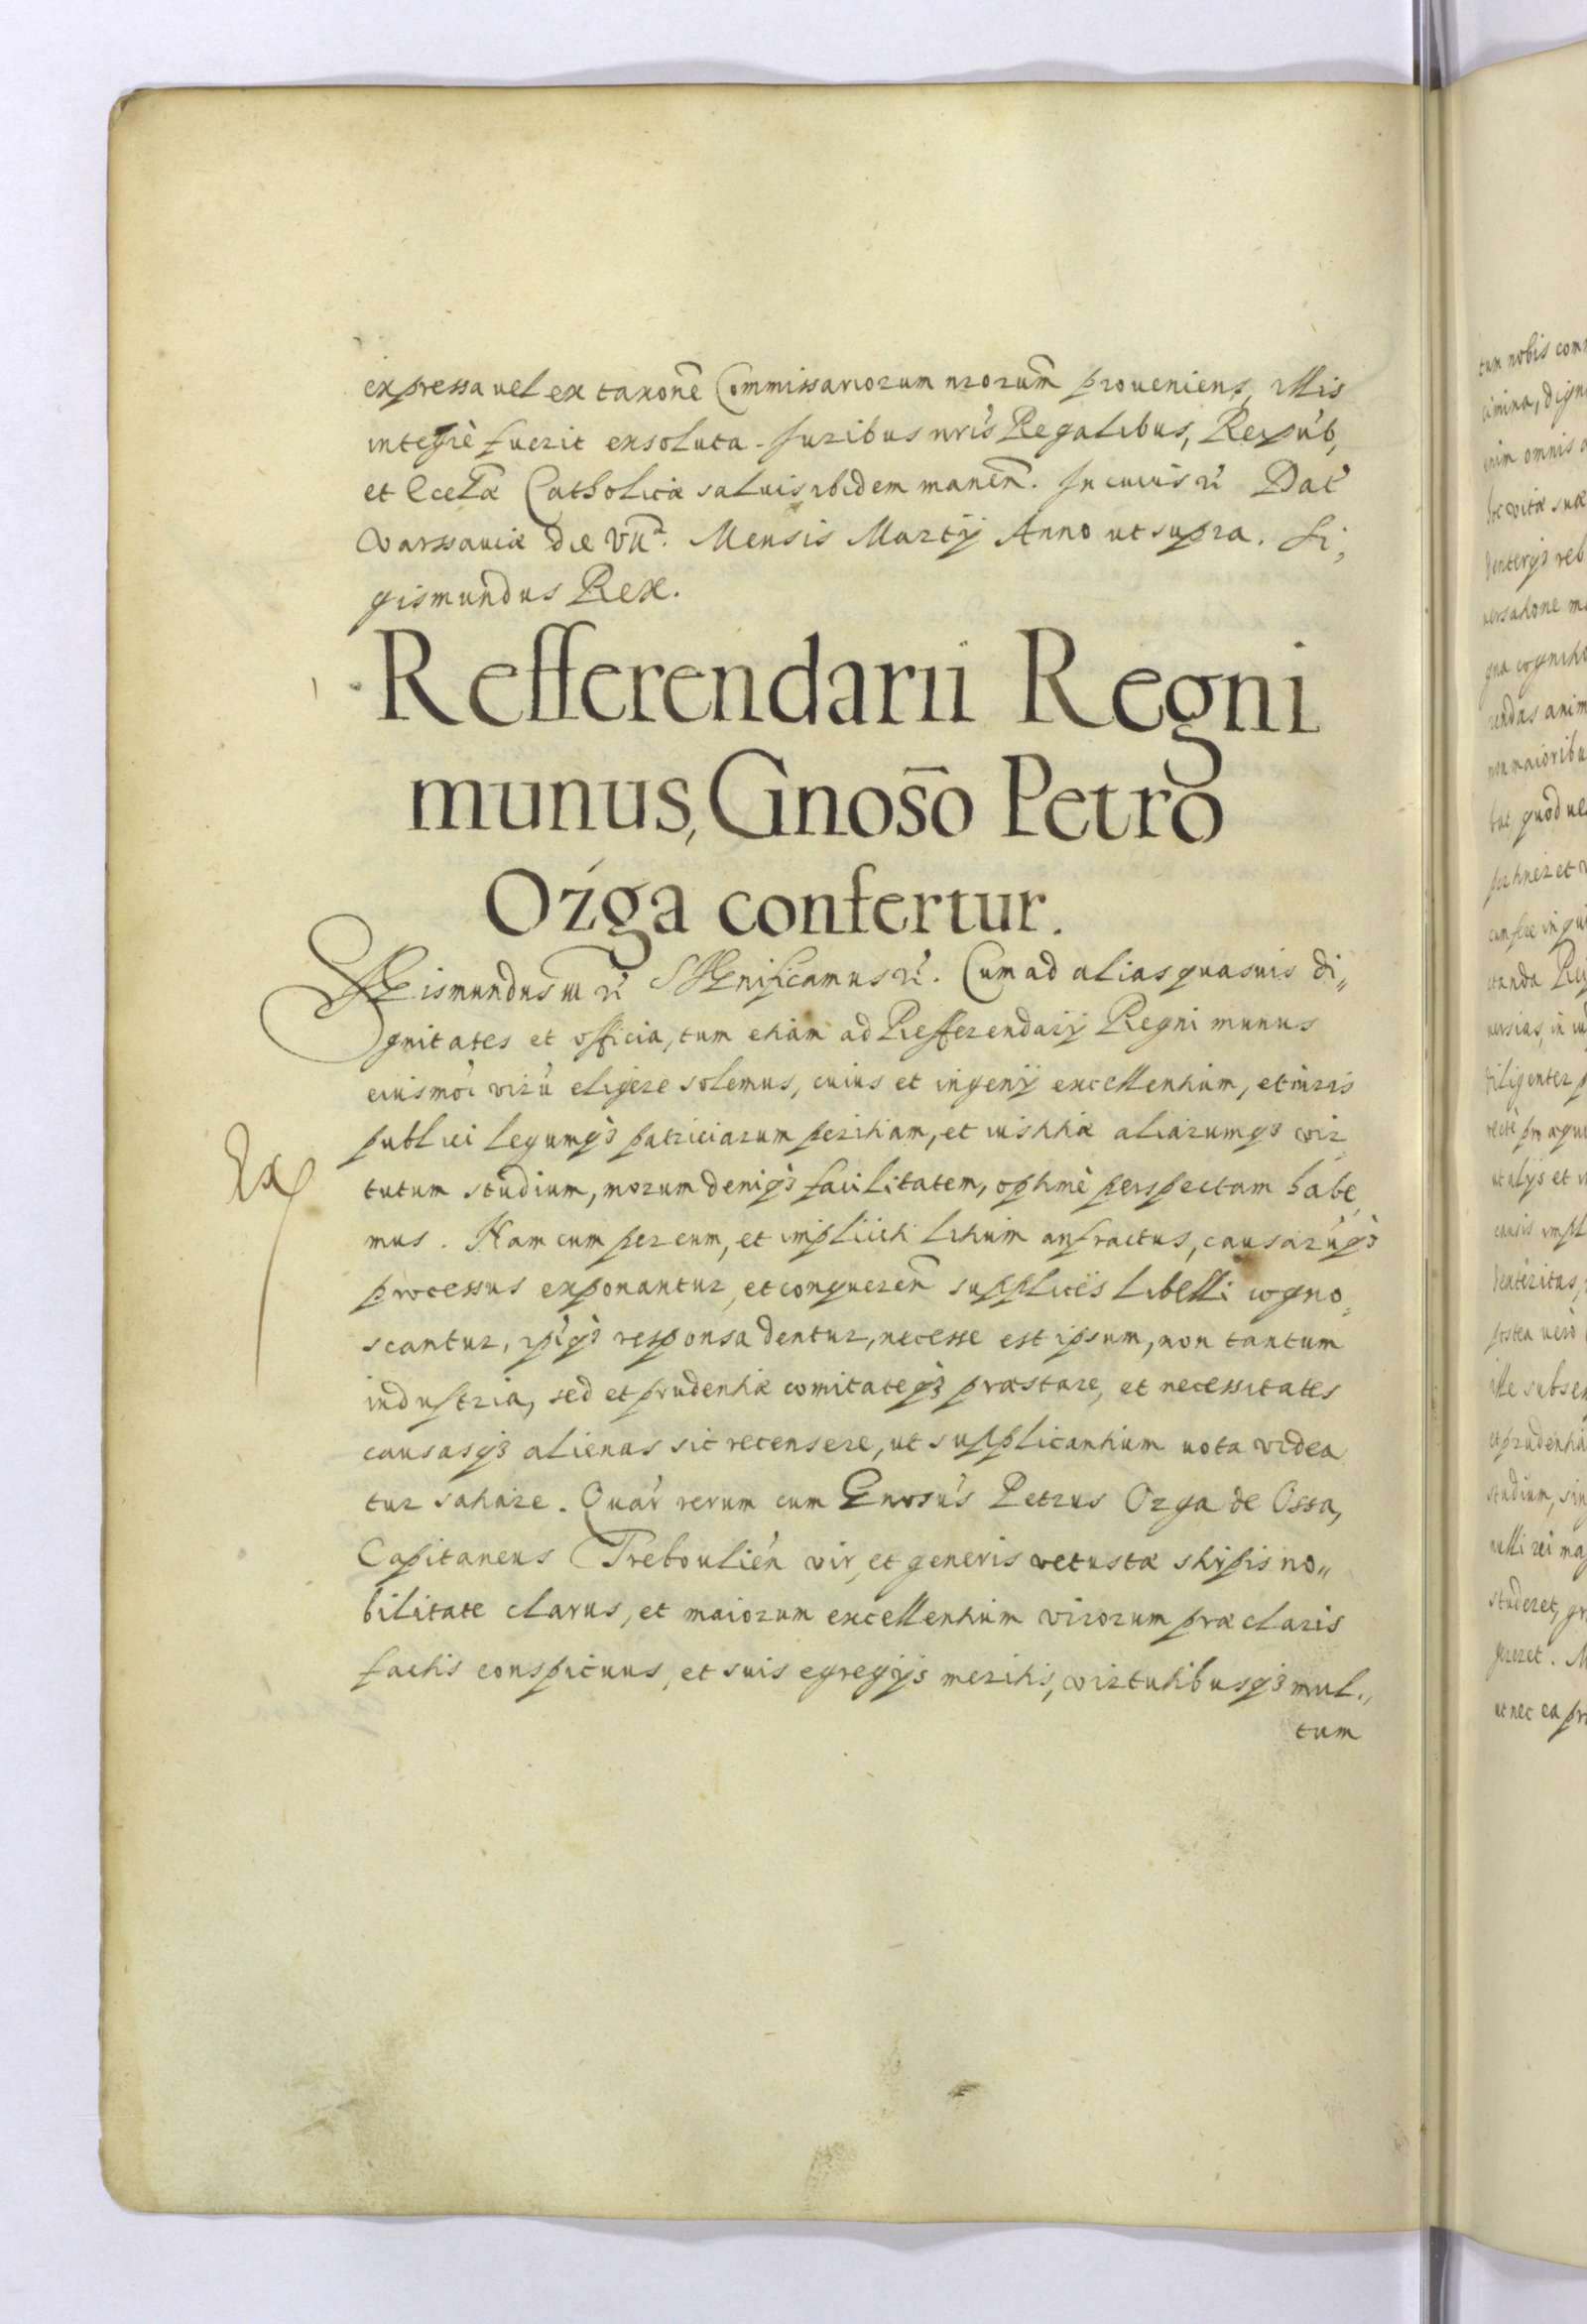 expressa vel ex taxone Commissariorum nrorum proueniens, illis
integrè fuerit exsoluta. Iuribus nris Regalibus, Reipub,
et Eccla Catholicæ saluis ibidem manen. In cuius rei Dat
Varssauiæ die VII. Mensis Martij Anno ut supra. Si,
gismundus Rex.
Refferendarii Regni
munus, Gnoso Petro
Ozga confertur.
Sigismundus III rz Significamus rz. Cum ad alias quasuis di„
gnitates et officia, tum etiam ad Refferendarij Regni munus
eiusmoi virū eligere solemus, cuius et ingenij excellentiam, et iuris
publici legumq3 patriciarum peritiam, et iustitiæ aliarumq3 vir
tutum studium, morum deniq3 facilitatem, optimè perspectam habe
mus. Nam cum per eum, et impliciti litium anfractus, causarūq3
processus exponantur, et conqueren supplices libelli cogno,
scantur, ijsq3 responsa dentur, necesse est ipsum, non tantum
industria, sed et prudentiæ comitateq3 præstare, et necessitates
causasq3 alienas sic recensere, ut supplicantium uota videa
tur satiare. Quar rerum cum Gnosus Petrus Ozga de Ossa,
Capitaneus Treboulien vir, et generis vetustæ stirpis no„
bilitate clarus, et maiorum excellentium virorum præclaris
factis conspicuus, et suis egregijs meritis, virtutibusq3 mul„
tum